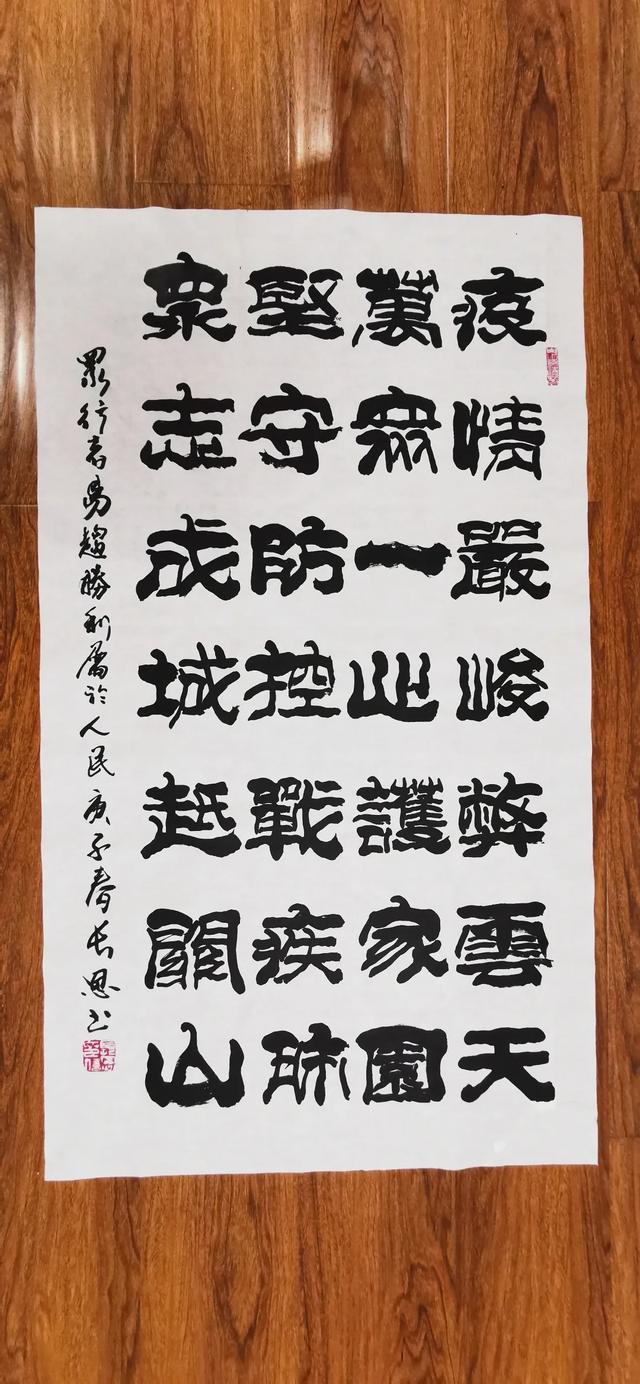 疫情嚴峻弊雲天
萬眾一心護家園
堅守防控戰疾
衆志成城越關山
眾行者易趨勝利屬於人民庚子春长恩书